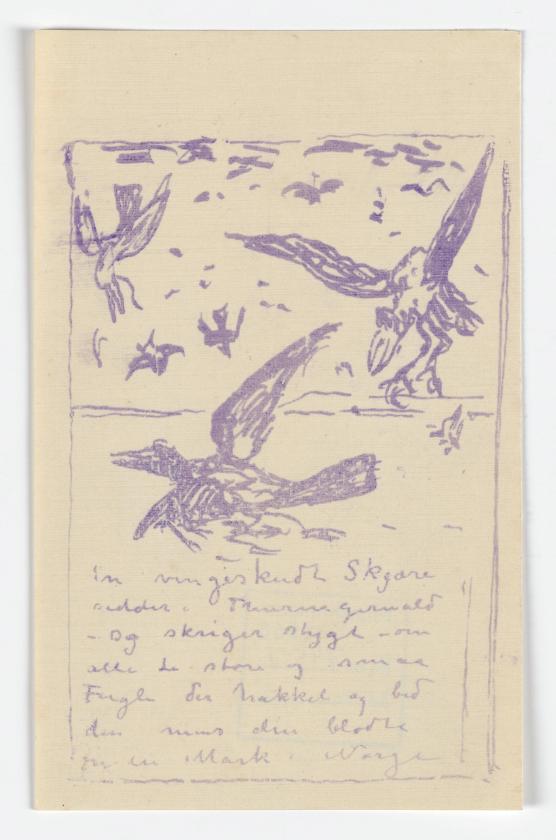 En vingeskudt Skjære
sidder i Thüringerwald
- og skriger stygt - om
alle de store og smaa
Fugle der hakket og bed
den mens den blødte
en Mark i Norge